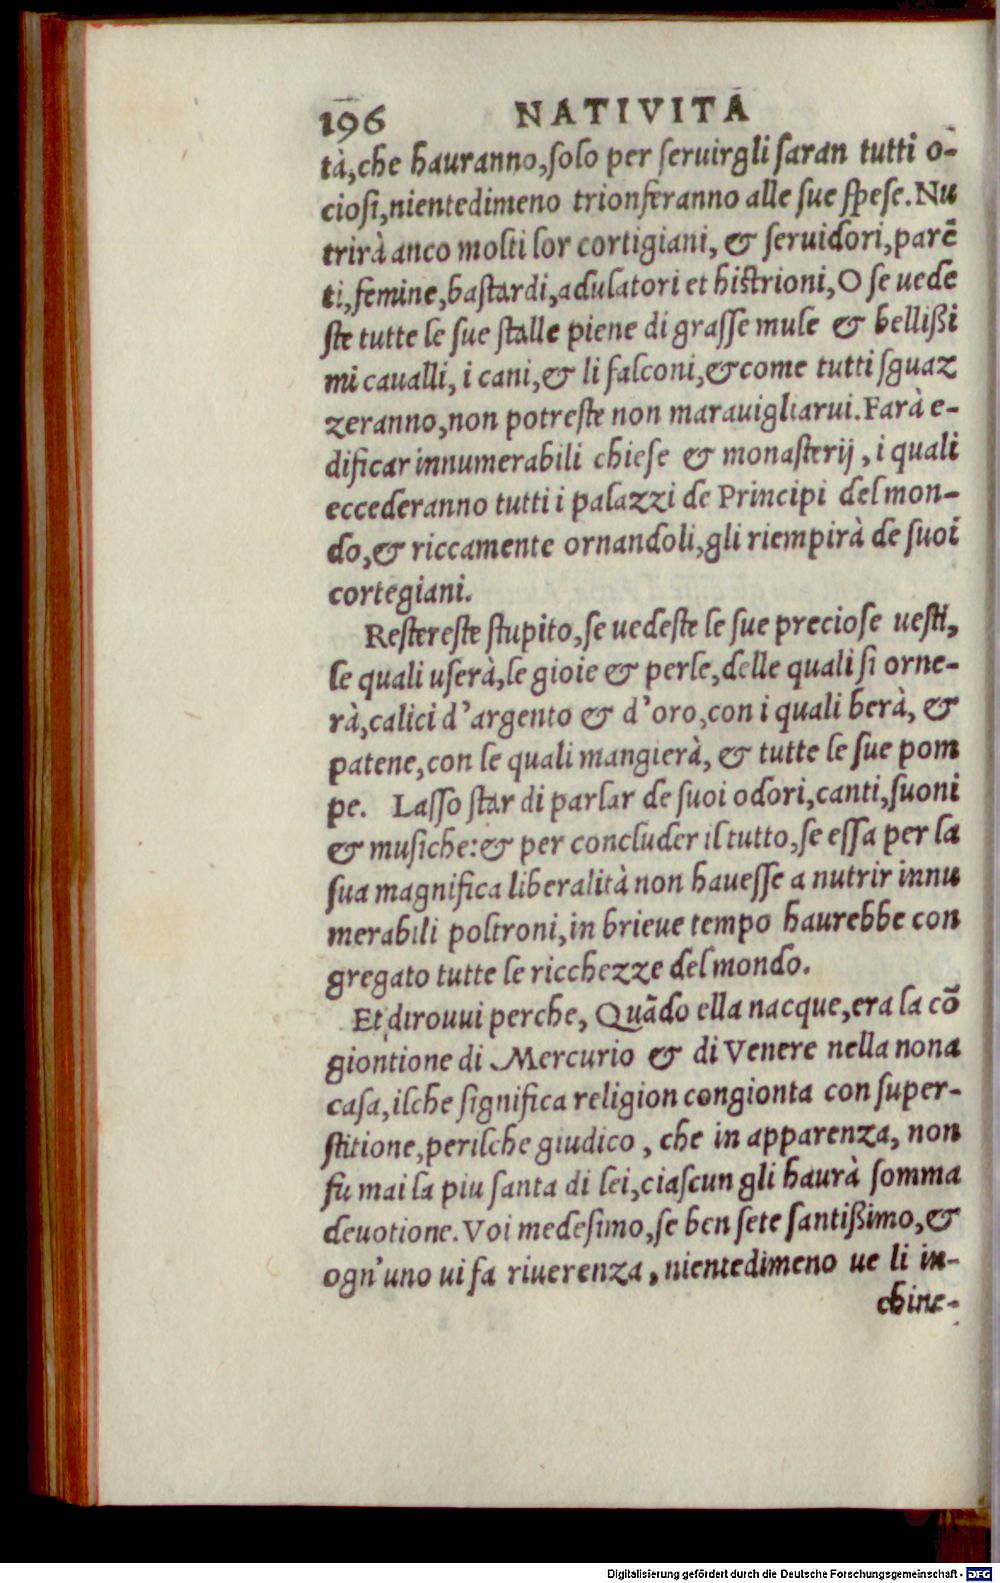 196 NATIVITÀ
tà, che hauranno, ſolo per ſeruirgli ſaran tutti o-
cioſi, nientedimeno trionferanno alle ſue ſpeſe. Nu
trirà anco molti lor cortigiani, & ſeruidori, parẽ
ti, femine, baſtardi, adulatori et hiſtrioni, O ſe uede
ſte tutte le ſue ſtalle piene di graſſe mule & bellißi
mi caualli, i cani, & li falconi, & come tutti ſguaz
zeranno, non potreſte non marauigliarui. Farà e-
dificar innumerabili chieſe & monaſterij, i quali
eccederanno tutti i palazzi de Principi del mon-
do, & riccamente ornandoli, gli riempirà de ſuoi
cortegiani.
Reſtereſte ſtupito, ſe uedeſte le ſue precioſe ueſti,
le quali uſerà, le gioie & perle, delle quali ſi orne-
rà, calici d'argento & d'oro, con i quali berà, &
patene, con le quali mangierà, & tutte le ſue pom
pe. Laſſo ſtar di parlar de ſuoi odori, canti, ſuoni
& muſiche: & per concluder il tutto, ſe eſſa per la
ſua magnifica liberalità non haueſſe a nutrir innu
merabili poltroni, in brieue tempo haurebbe con
gregato tutte le ricchezze del mondo.
Et dirouui perche, Quãdo ella nacque, era la cõ
giontione di Mercurio & di Venere nella nona
caſa, ilche ſignifica religion congionta con ſuper-
ſtitione, perilche giudico, che in apparenza, non
fu mai la piu ſanta di lei, ciaſcun gli haurà ſomma
deuotione. Voi medeſimo, ſe ben ſete ſantißimo, &
ogn'uno ui fa riuerenza, nientedimeno ue li in-
chine-
Digitalisierung gefördert durch die Deutsche Forschungsgemeinschaft - DFG